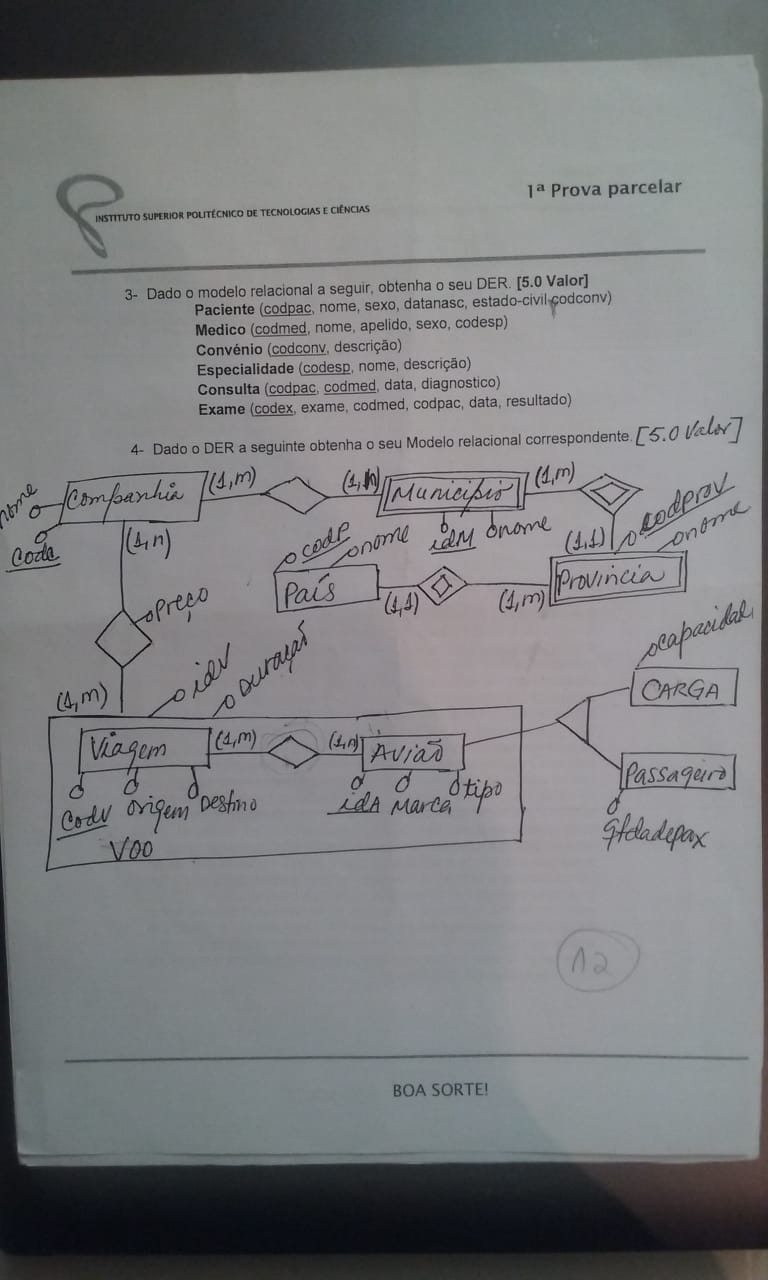 1ª Prova parcelar
INSTITUTO SUPERIOR POLITÉCNICO DE TECNOLOGIAS E CIÊNCIAS
3- Dado o modelo relacional a seguir, obtenha o seu DER. [5.0 Valor]
Paciente (codpac, nome, sexo, datanasc, estado-civil,codconv)
Medico (codmed, nome, apelido, sexo, codesp)
Convénio (codconv, descrição)
Especialidade (codesp, nome, descrição)
Consulta (codpac, codmed, data, diagnostico)
Exame (codex, exame, codmed, codpac, data, resultado)
4- Dado o DER a seguinte obtenha o seu Modelo relacional correspondente. [5.0 Valor]
nome
Companhia (1,m) (1,n) Município (1,m)
Coda
(1,n)
idM nome
codprov
nome
codP nome
(1,1)
País (1,1) (1,m) Província
Preço
(1,m)
idV
Duração
capacidad
CARGA
Viagem (1,m) (1,n) Avião
Passageiro
CodV origem Destino idA Marca tipo
VOO
qtdadepax
12
BOA SORTE!